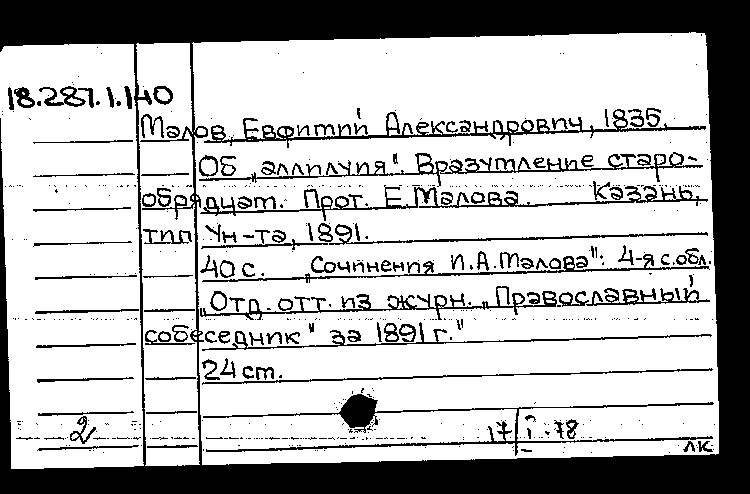 18.287.1.140
Малов, Евфимий Александрович, 1835.
Об „аллилуия". Вразумление старо-
обрядцам. Прот. Е. Малова. Казань,
тип Ун-та, 1891.
40 с. „Сочинения И.А. Малова": 4-я с. обл.
„Отд. отт. из журн. „Православный
собеседник" за 1891 г."
24 см.
2
17/I-78
ЛК